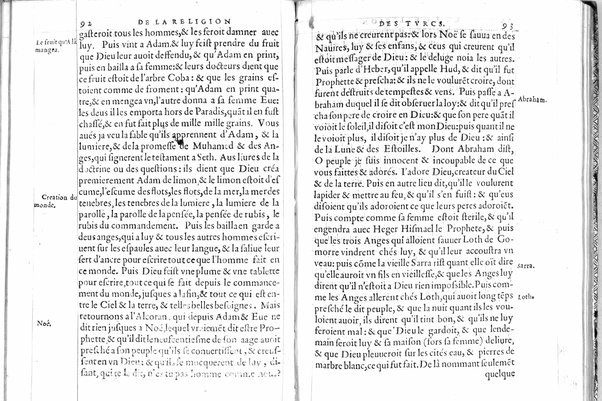 92
DE LA RELIGION
Le fruit qu'Adã mangea.
gasteroit tous les hommes, & les feroit damner auec
luy. Puis vint a Adam. & luy feist prendre du fruit
que Dieu leur auoit deffendu, & qu'Adam en print,
puis en bailla a sa femme: & leurs docteurs dient que
ce fruit estoit de l'arbre Coba: & que les grains es-
toient comme de froment: qu'Adam en print qua-
tre, & en mengea vn, l'autre donna a sa femme Eue:
les deus il les emporta hors de Paradis, quãt il en fust
chassé, & en fut fait plus de mille mille grains. Vous
aués ja veu la fable qu'ils apprennent d'Adam, & la
lumiere, & de la promesse de Muhamed & des An-
ges, qui signerent le testament a Seth. Aus liures de la
doctrine ou des questions: ils dient que Dieu créa
premierement Adam de limon, & le limon estoit d'es
Creation du monde.
cume, l'escume des flots, les flots, de la mer, la mer des
tenebres, les tenebres de la lumiere, la lumiere de la
parolle, la parolle de la pensée, la pensée de rubis, le
rubis du commandement. Puis les bailla en garde a
deus anges, qui a luy & tous les autres hommes escri-
uent sur les espaules auec leur langue, & la saliue leur
sert d'ancre pour escrire tout ce que l'homme fait en
ce monde. Puis Dieu feist vne plume & vne tablette
pour escrire, tout ce qui se fait depuis le commance-
ment du monde, jusques a la fin, & tout ce qui est en-
tre le Ciel & la terre, & telles belles besoignes. Mais
retournons a l'Alcoran, qui depuis Adam & Eue ne
Noé.
dit rien jusques a Noé, lequel vraiemẽt dit estre Pro-
phette, & qu'il dit
age auoit
presché a son peuple qu'ils se conuertissent, & creus-
sent en vn Dieu: & qu'ils se mocquerent de luy, di-
sant, qui te la dit, n'es tu pas homme comme
DES TVRCS.
93
& qu'ils ne creurent pas: & lors Noé se sauua en des
Nauires, luy & ses enfans, & ceus qui creurent qu'il
estoit messager de Dieu: & le deluge noia les autres.
Puis parle d'Heber, qu'il appelle Hud, & dit qu'il fut
Prophette & prescha: & ils ne le voulurẽt croire, dont
furent destruits de tempestes & vens. Puis passe a A-
Abraham.
braham duquel il se dit obseruer la loy: & dit qu'il pres
cha son pere de croire en Dieu: & que son pere quãt il
voioit le soleil, il disoit c'est mon Dieu: puis quant il ne
le voioit plus, il disoit je n'ay plus de Dieu: & ainsi
de la Lune & des Estoilles. Dont Abraham dist,
O peuple je suis innocent & incoupable de ce que
vous faittes & adorés. I'adore Dieu, createur du Ciel
& de la terre. Puis en autre lieu dit, qu'ille voulurent
lapider & mettre au feu, & qu'il s'en fuist: & qu'eus
disoient qu'ils adoroient ce que leurs peres adoroiẽt.
Puis compte comme sa femme estoit sterile, & qu'il
engendra auec Heger Hismael le Prophete, & puis
que les trois Anges qui alloient sauuer Loth de Go-
morre vindrent chés luy, & qu'il leur accoustra vn
Sarra.
veau: puis cõme la vieille Sarra rist quant elle oit dire
qu'elle auroit vn fils en vieillesse, & que les Anges luy
dirent qu'il n'estoit a Dieu rien impossible. Puis com-
Loth.
me les Anges allerent chés Loth, qui auoit long tẽps
presché le dit peuple, & que la nuit quant ils les vou-
loient auoir, ils dirent qu'il tint bon, & qu'ils ne luy
feroient mal: & que Dieu le gardoit, & que lende-
main feroit luy & sa maison (fors sa femme) deliure,
& que Dieu pleuueroit sur les cités eau, & pierres de
marbre blanc, ce qui fut fait. De là nommant seulemẽt
quelque